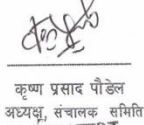 कृष्ण प्रसाद पौडेल
अध्यक्ष, संचालक समिति